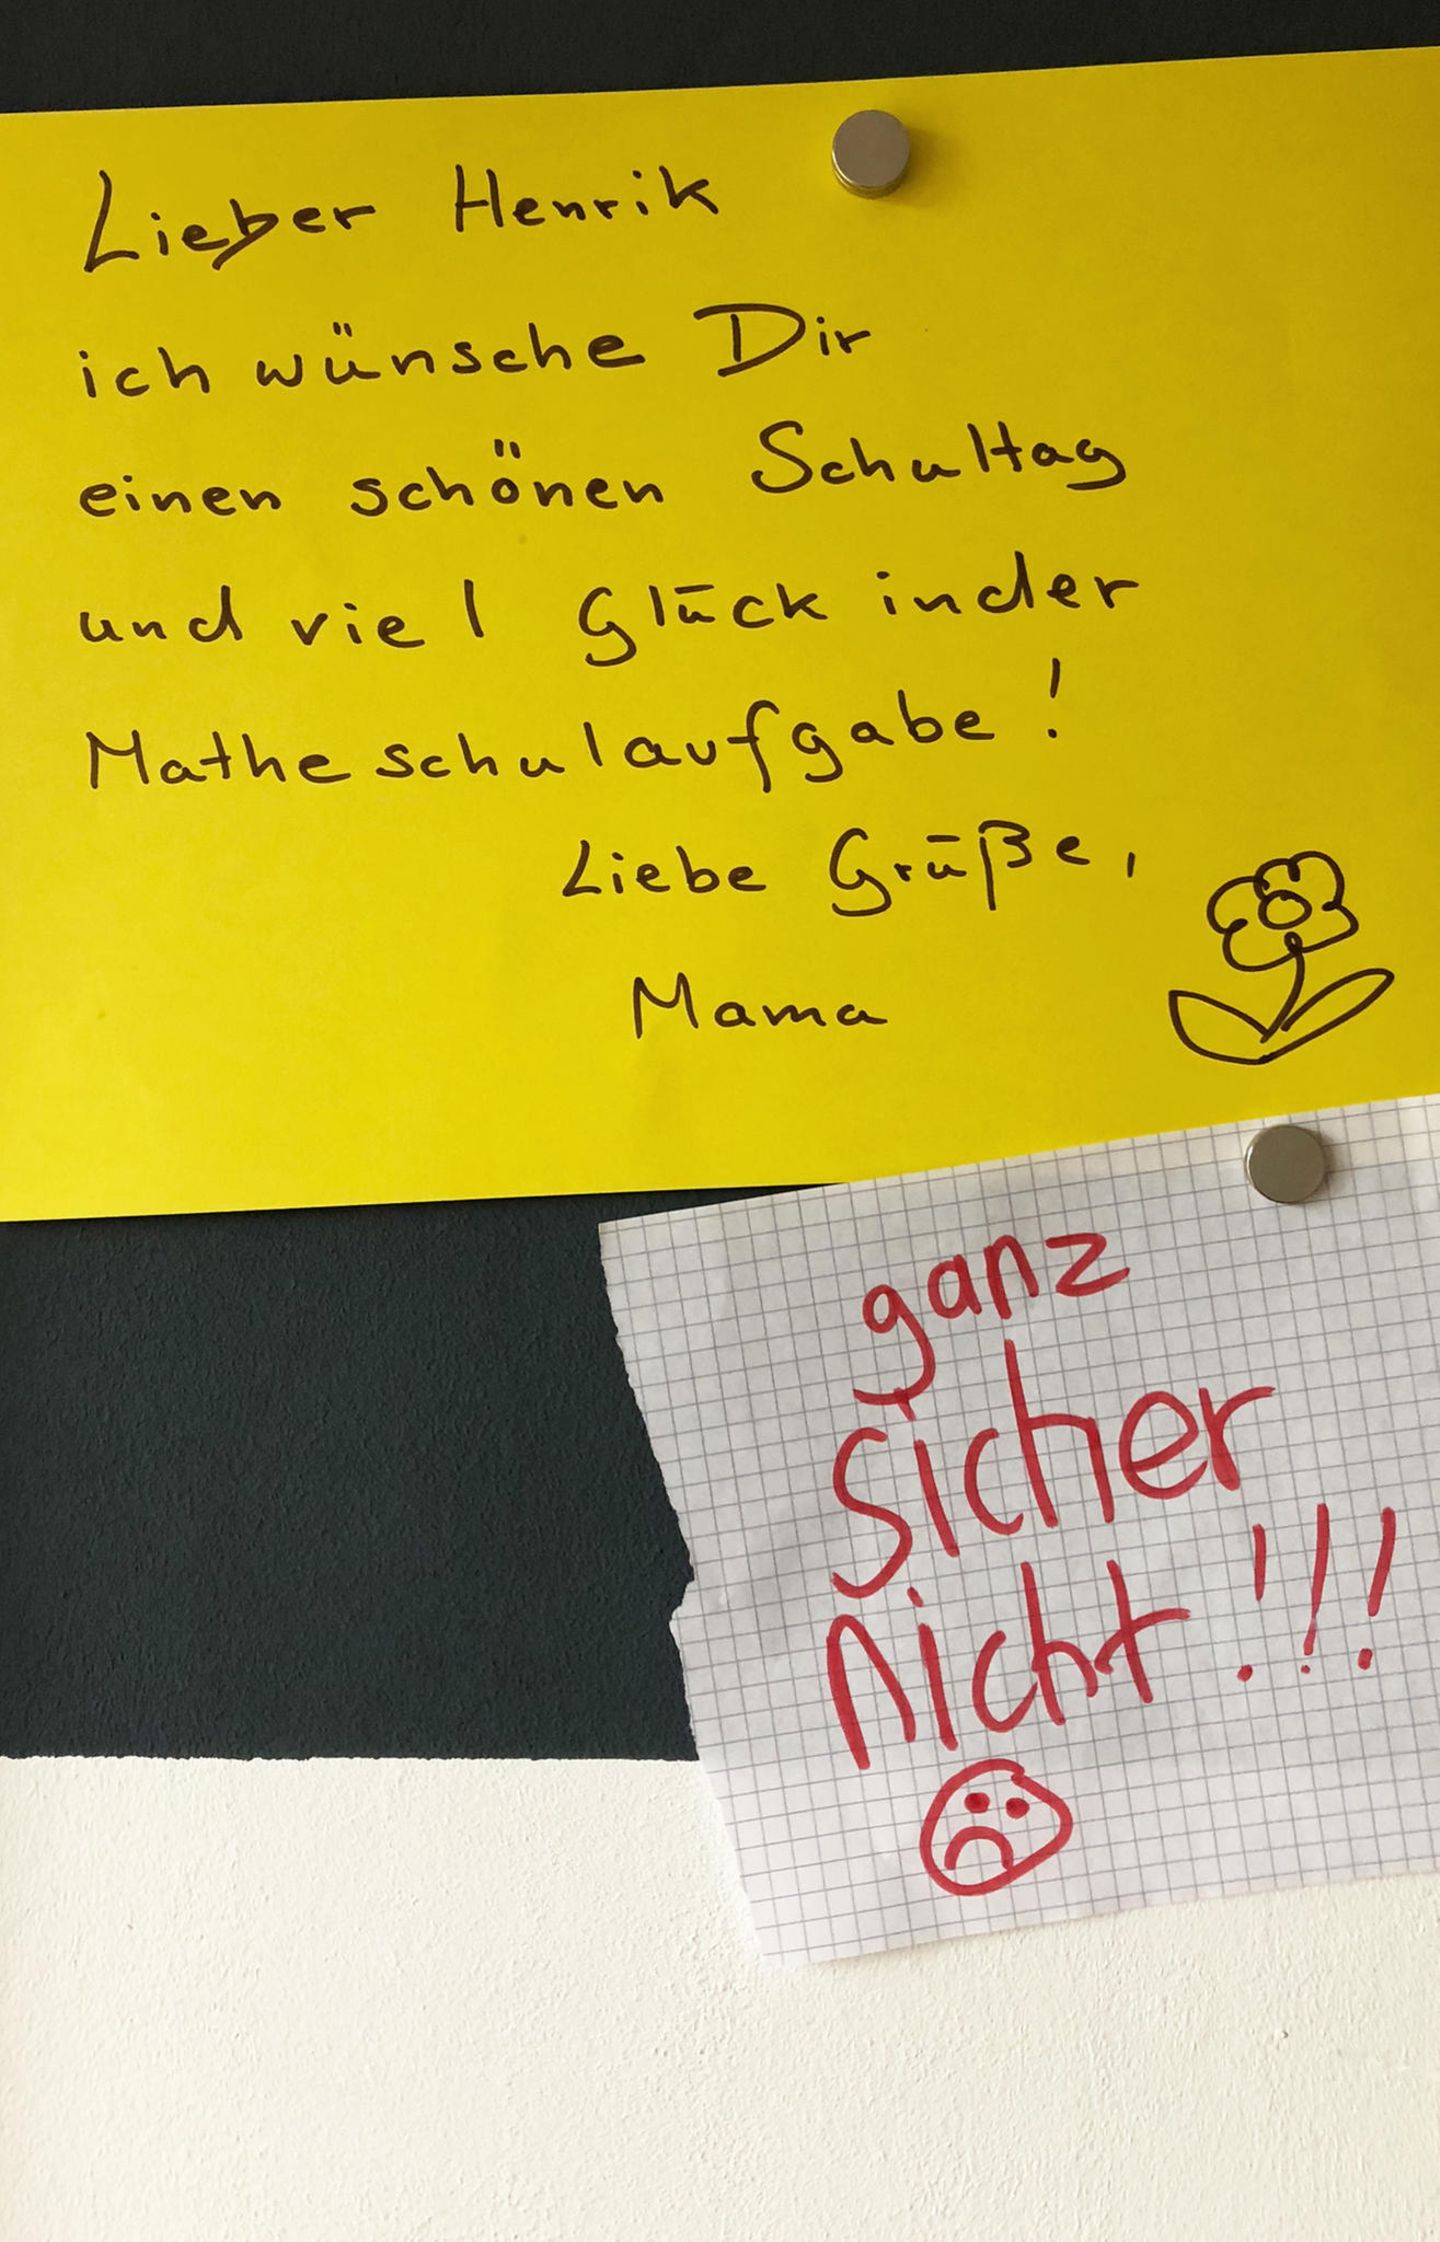 Lieber Henrik
ich wünsche Dir
einen schönen Schultag
und viel Glück in der
Matheschulaufgabe!
Liebe Grüße,
Mama
ganz
sicher
nicht!!!